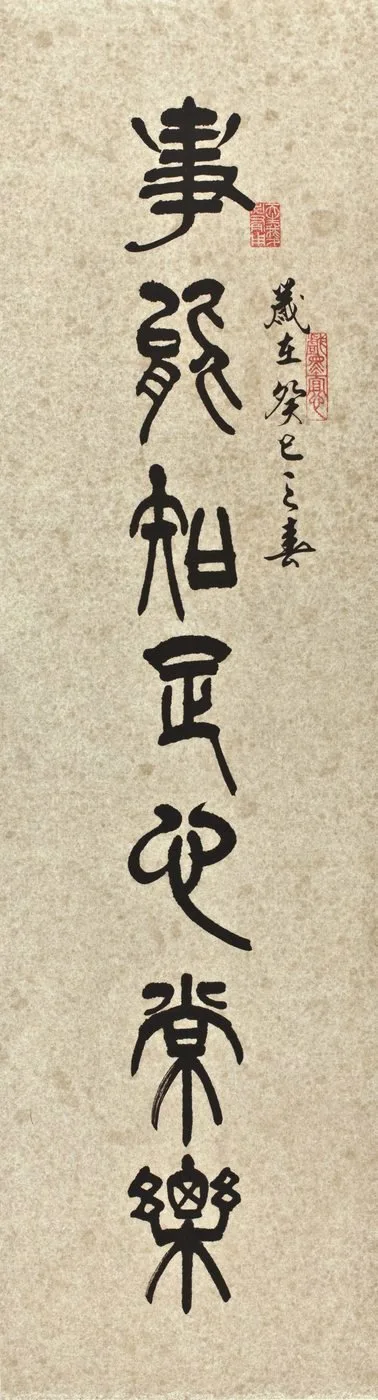 歲在癸巳之春
事能知足心常樂